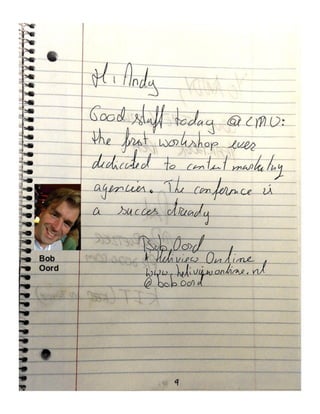 Hi Andy
Good stuff today @CMW:
the first workshop ever
dedicated to content marketing
agencies. The conference is
a succes already
Bob Oord
Online
www.heliviewonline.nl
@boboord
Bob
Oord
9